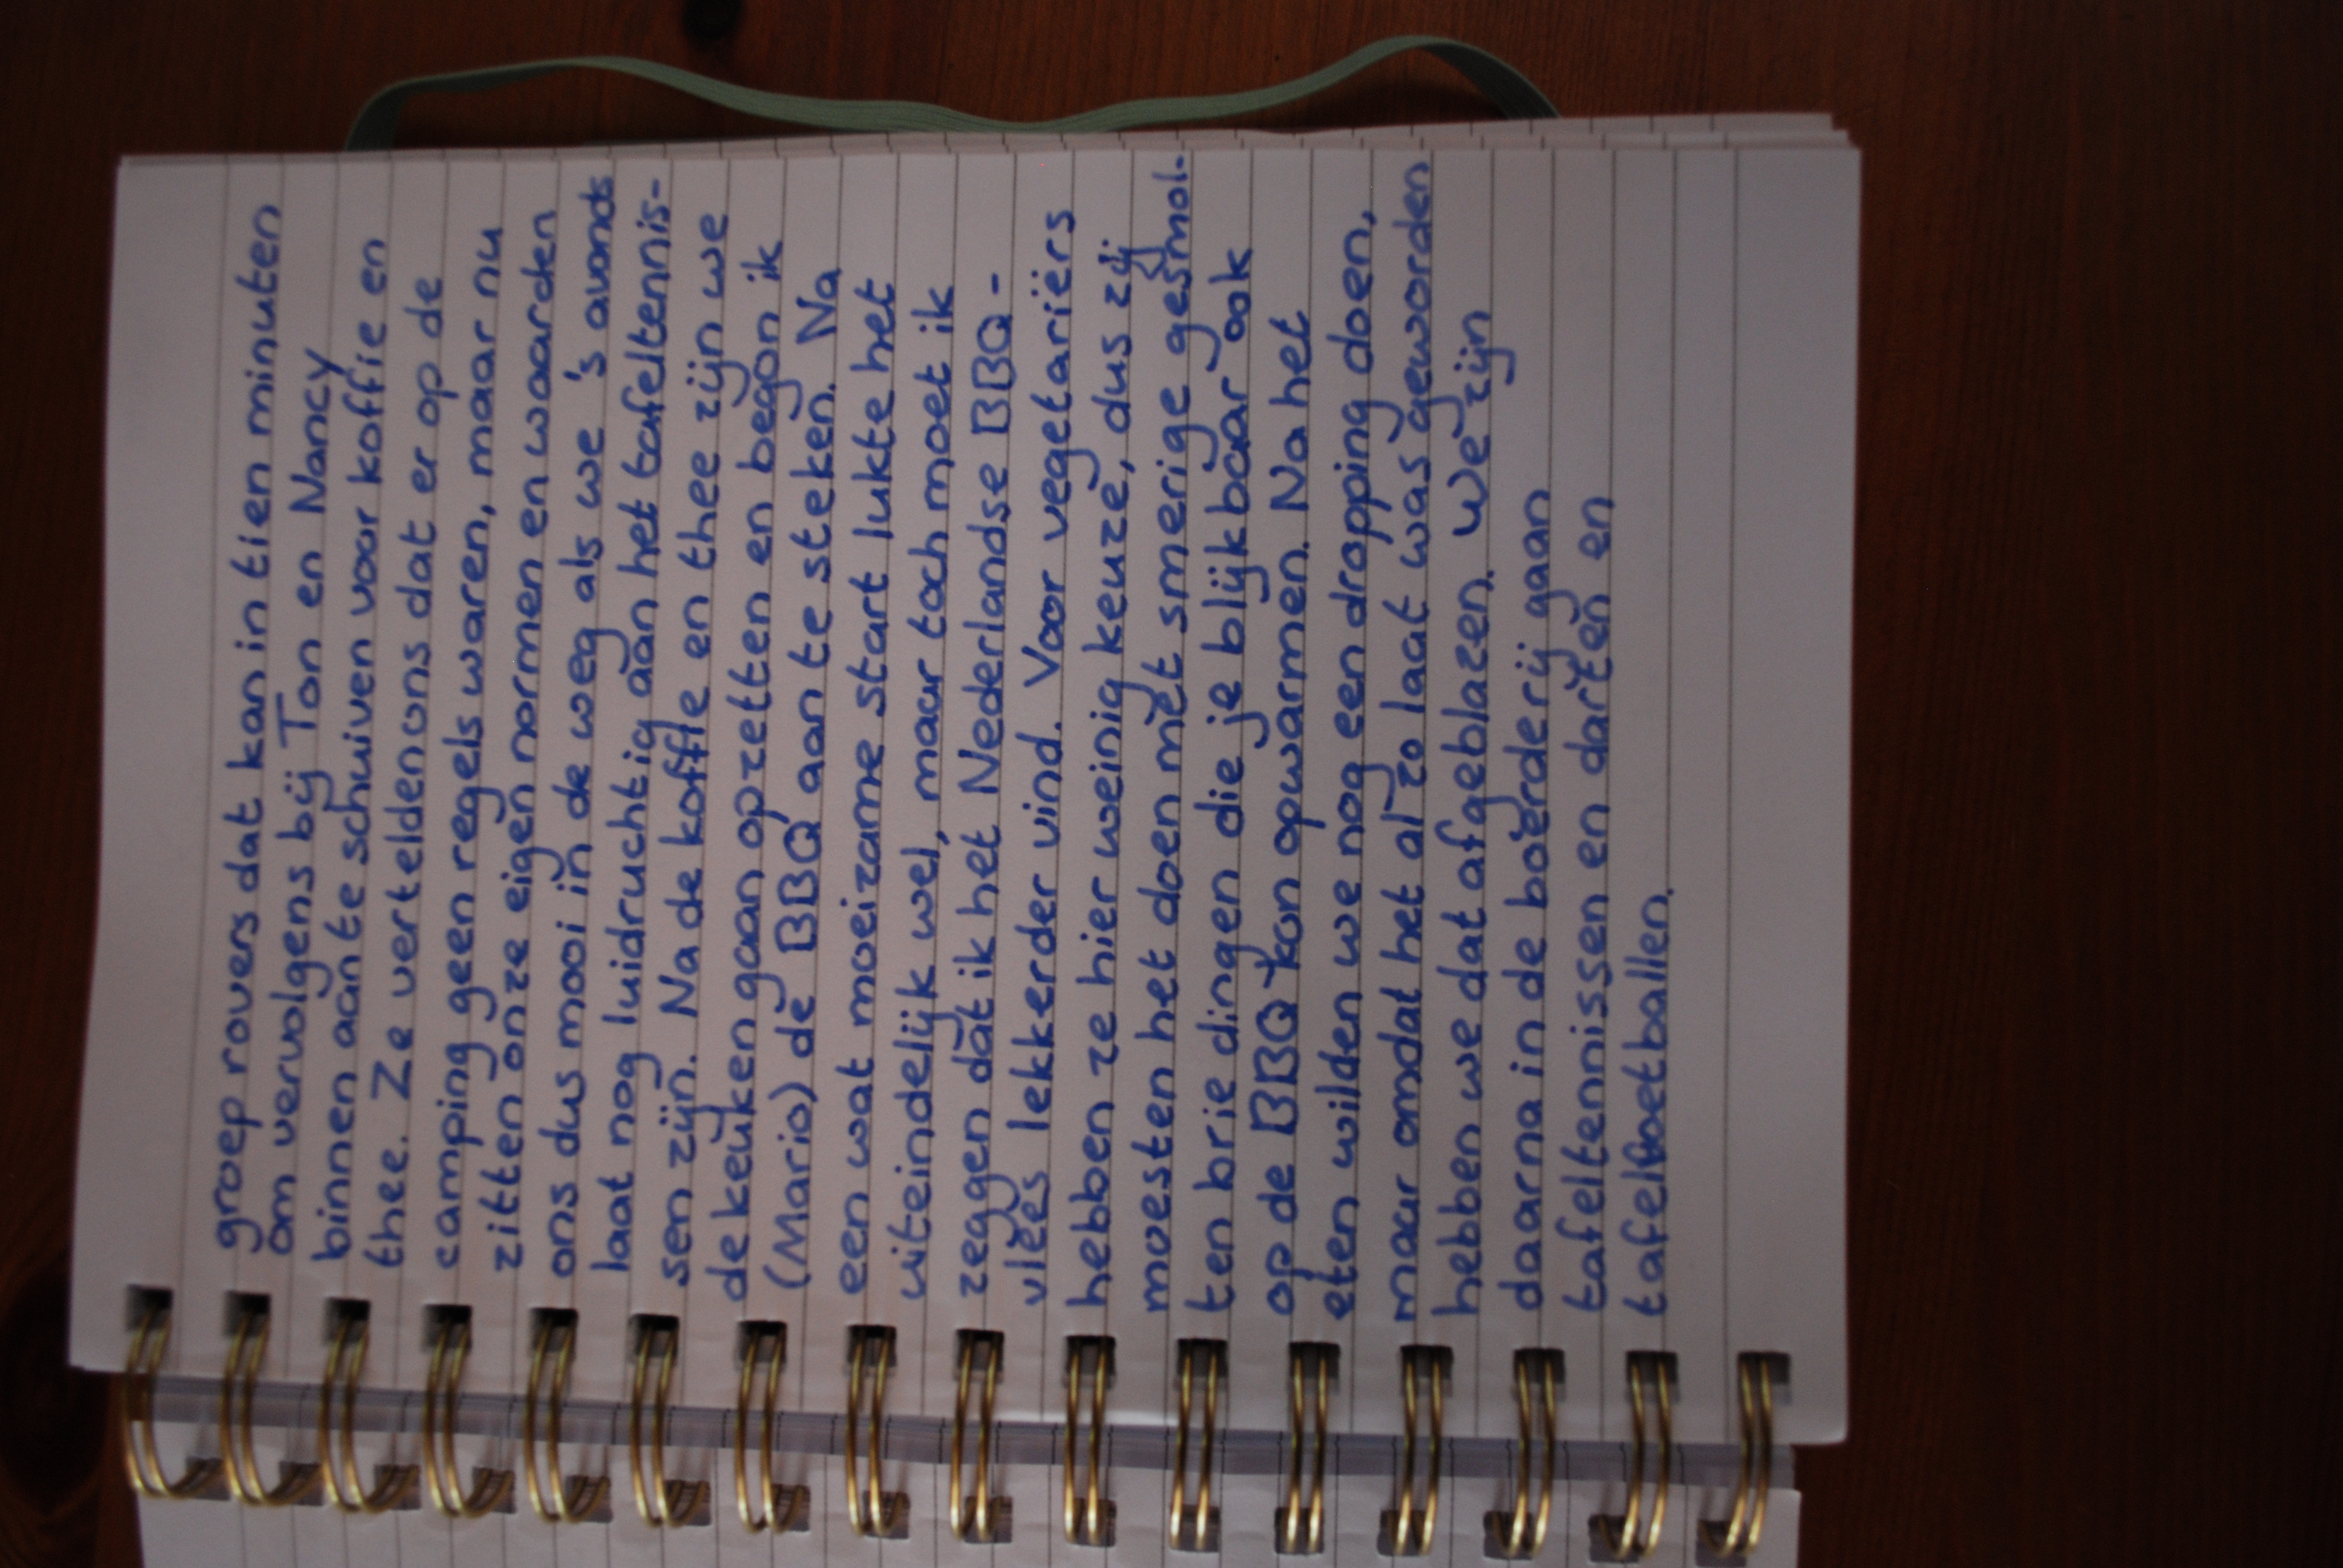 groep rovers dat kan in tien minuten
om vervolgens bij Ton en Nancy
binnen aan te schuiven voor koffie en
thee. Ze vertelden ons dat er op de
camping geen regels waren, maar nu
zitten onze eigen normen en waarden
ons dus mooi in de weg als we 's avonds
laat nog luidruchtig aan het tafeltennis-
sen zijn. Na de koffie en thee zijn we
de keuken gaan opzetten en begon ik
(Mario) de BBQ aan te steken. Na
een wat moeizame start lukte het
uiteindelijk wel, maar toch moet ik
zeggen dat ik het Nederlandse BBQ-
vlees lekkerder vind. Voor vegetariërs
hebben ze hier weinig keuze, dus zij
moesten het doen met smerige gesmol-
ten brie dingen die je blijkbaar ook
op de BBQ kon opwarmen. Na het
eten wilden we nog een dropping doen,
maar omdat het al zo laat was geworden
hebben we dat afgeblazen. We zijn
daarna in de boerderij gaan
tafeltennissen en darten en
tafelvoetballen.